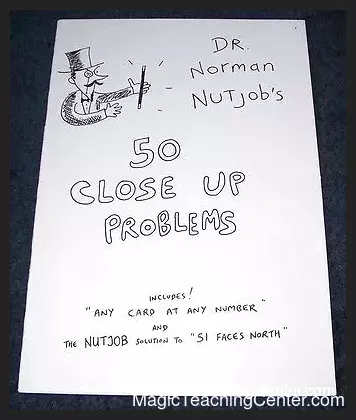 DR.
NORMAN
NUTJOB'S
50
CLOSE UP
PROBLEMS
INCLUDES!
"ANY CARD AT ANY NUMBER"
AND
THE NUTJOB SOLUTION TO "51 FACES NORTH"
MagicTeachingCenter.com